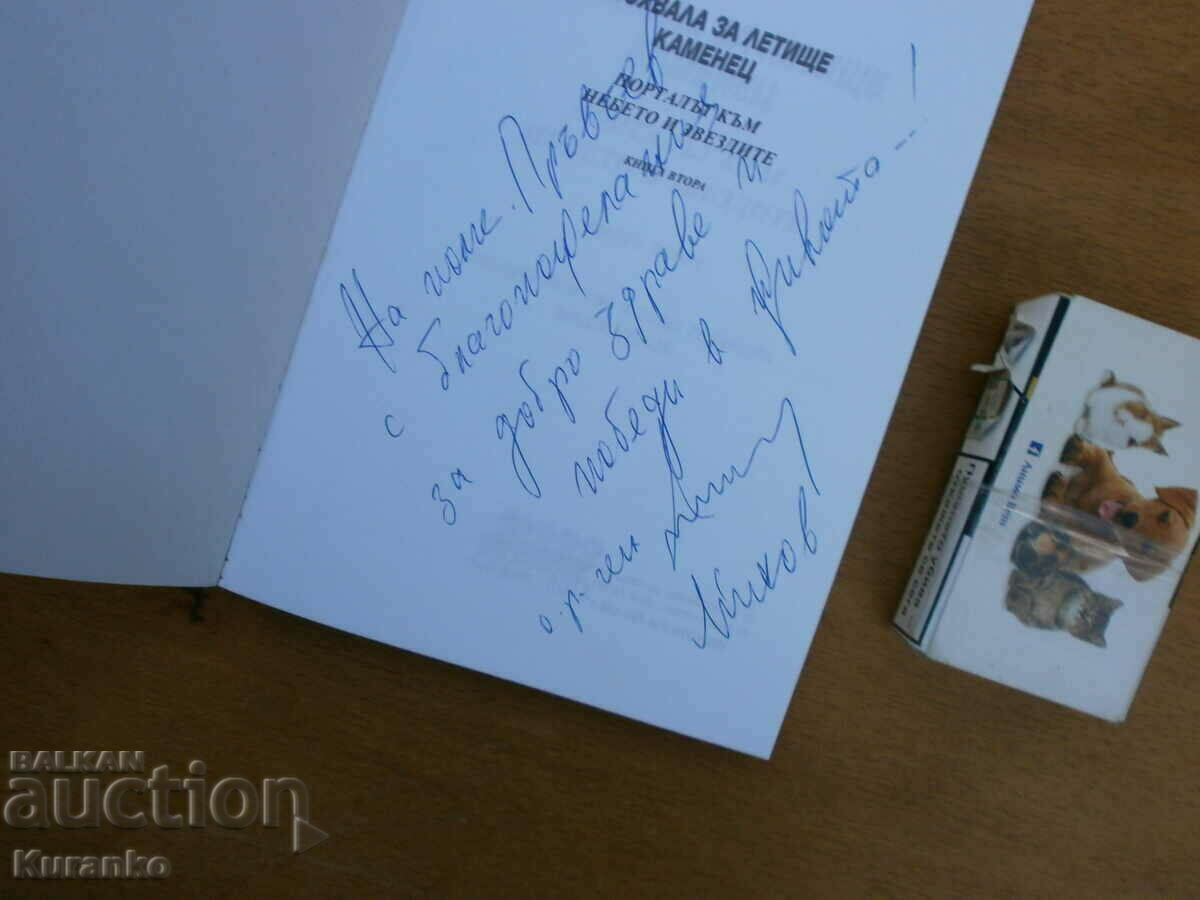 ХВАЛА ЗА ЛЕТИЩЕ
КАМЕНЕЦ
ПОРТАЛЪТ КЪМ
НЕБЕТО И ЗВЕЗДИТЕ
КНИГА ВТОРА
На полк. Пръвчев
с благопожелания
за добро здраве и
победи в живота---!
о.р. ген
Михов
BALKAN
auction
Kuranko